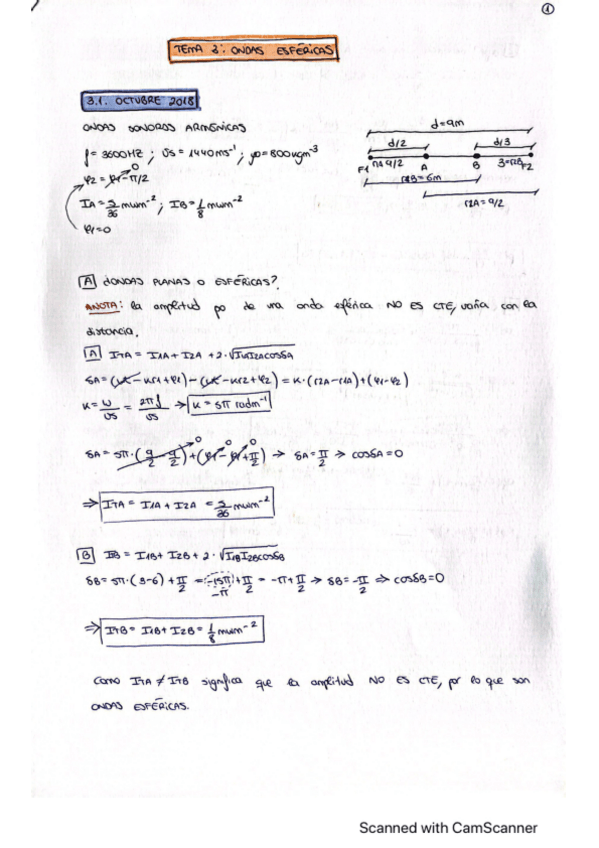 1
TEMA 3: ONDAS ESFÉRICAS
3.1. OCTUBRE 2018
ONDAS SONORAS ARMÓNICAS
f = 3600HZ ; vs = 1440ms⁻¹ ; ρ0 = 800kgm⁻³
φ2 = φ1 - π/2
0
IA = 5/36 mwm⁻² ; IB = 1/8 mwm⁻²
φ1 = 0
d = 9m
d/2
d/3
F1
r1A = 9/2
A
B
3 = r2B
F2
r1B = 6m
r2A = 9/2
A ¿ONDAS PLANAS O ESFÉRICAS?
ANOTA: la amplitud po de una onda esférica NO ES CTE, varía con la
distancia.
A ITA = I1A + I2A + 2·√I1A I2A cosδA
δA = (wt - kr1 + φ1) - (wt - kr2 + φ2) = k·(r2A - r1A) + (φ1 - φ2)
k = w/vs = 2πf/vs → k = 5π radm⁻¹
δA = 5π·(9/2 - 9/2) + (φ1 - φ1 + π/2) → δA = π/2 → cosδA = 0
⇒ ITA = I1A + I2A = 5/36 mwm⁻²
B ITB = I1B + I2B + 2·√I1B I2B cosδB
δB = 5π·(3-6) + π/2 = -15π + π/2 = -π + π/2 → δB = -π/2 ⇒ cosδB = 0
-π
⇒ ITB = I1B + I2B = 1/8 mwm⁻²
Como ITA ≠ ITB significa que la amplitud NO ES CTE, por lo que son
ONDAS ESFÉRICAS.
Scanned with CamScanner